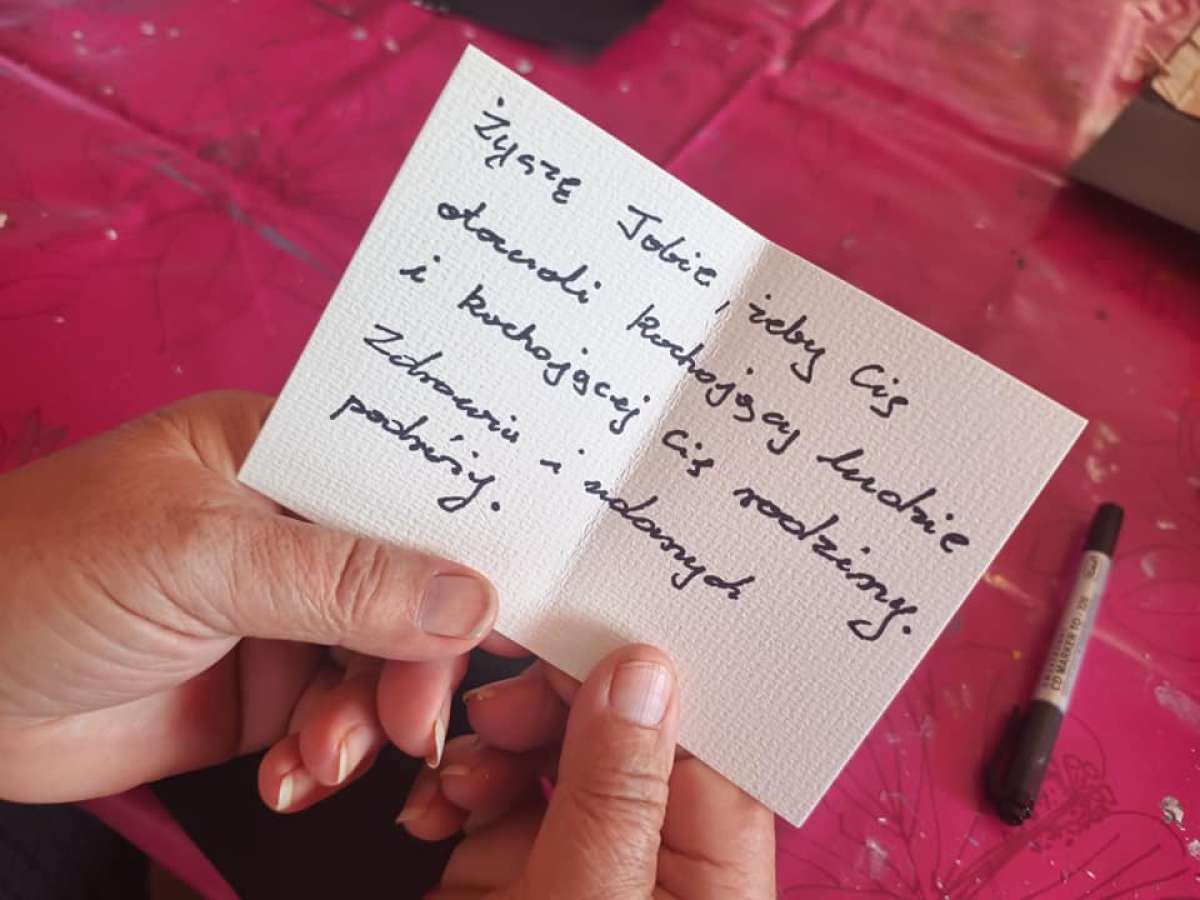 Życzę Tobie, żeby Cię
otaczali kochający ludzie
i kochającej Cię rodziny.
Zdrowia i udanych
podróży.
CD MARKER